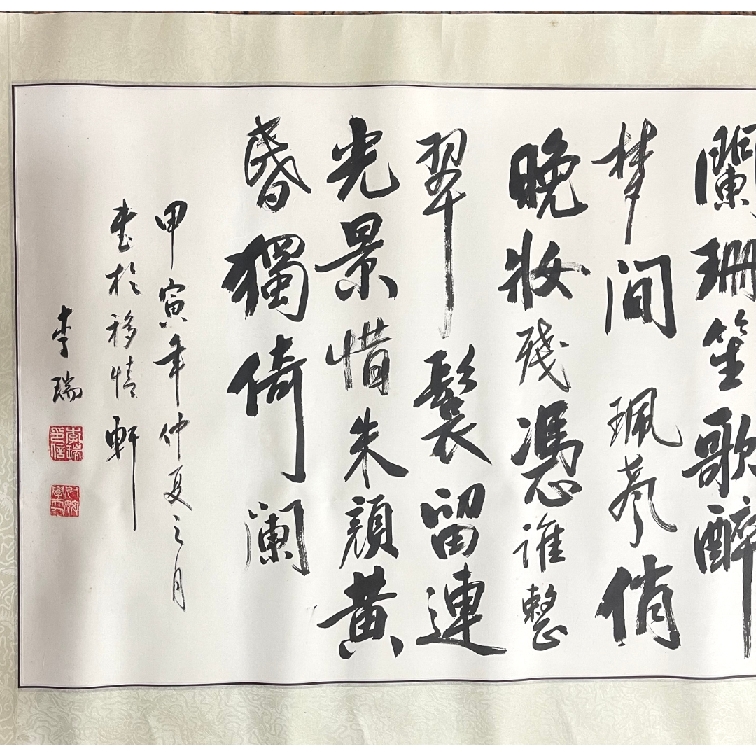 闌珊笙歌醉
梦间珮聲悄
晚妝残憑誰整
翠鬟留連
光景惜朱顔黄
昏獨倚闌
甲寅年仲夏之月
書於移情軒
李瑞